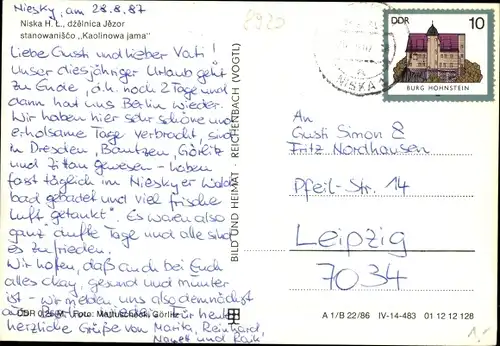 Niesky, am 28.8.87
8920
Niska H. L., dźělnica Jězor
stanowanišćo „Kaolinowa jama“
Liebe Gusti und lieber Vati!
Unser diesjähriger Urlaub geht
zu Ende, d.h. noch 2 Tage und
dann hat uns Berlin wieder.
Wir haben hier sehr schöne und
erholsame Tage verbracht, sind
in Dresden, Bautzen, Görlitz
und Zittau gewesen - haben
fast täglich im Nieskyer Wald-
bad gebadet und viel frische
Luft "getankt". Es waren also
ganz dufte Tage und alle sind
es zufrieden.
Wir hoffen, daß auch bei Euch
alles okay, gesund und munter
ist - wir melden uns also demnächst
aus Berlin wieder. Für heute
herzliche Grüße von Marita, Reinhard,
und
DDR 0,25 M Foto: Martuschek, Görlitz
BILD UND HEIMAT · REICHENBACH (VOGTL)
NISKA 1
a
DDR 10
BURG HOHNSTEIN
An
Gusti Simon &
Fritz Nordhausen
Pfeil-Str. 14
Leipzig
7034
A 1/B 22/86 IV-14-483 01 12 12 128
1.-